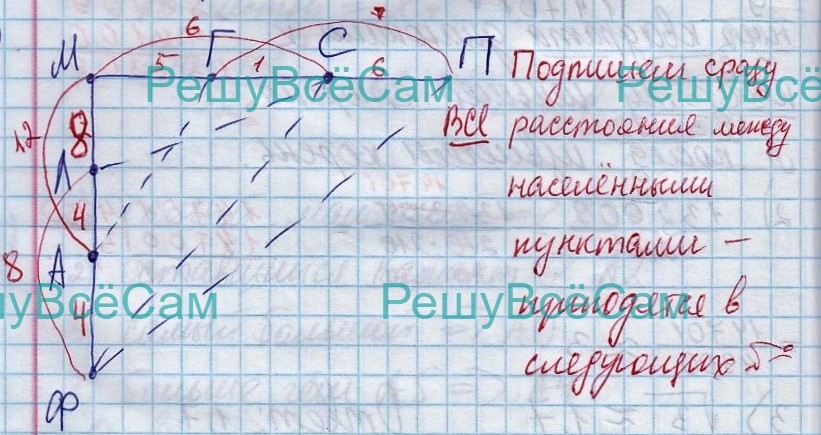 6
7
М Г С П
5 1 6
Подпишем сразу
РешуВсёСам РешуВсё
12
8
ВСЕ расстояния между
Л
населёнными
4
пунктами –
8
А
РешуВсёСам РешуВсёСам
4
пригодятся в
следующих
Ф